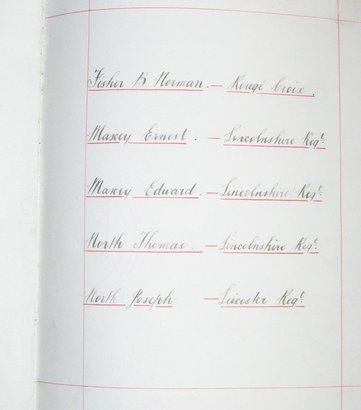 Fisher B Norman. — Rougé Croix.
Maxey Ernest. — Lincolnshire Regt.
Maxey Edward. — Lincolnshire Regt.
North Thomas. — Lincolnshire Regt.
North Joseph — Leicester Regt.